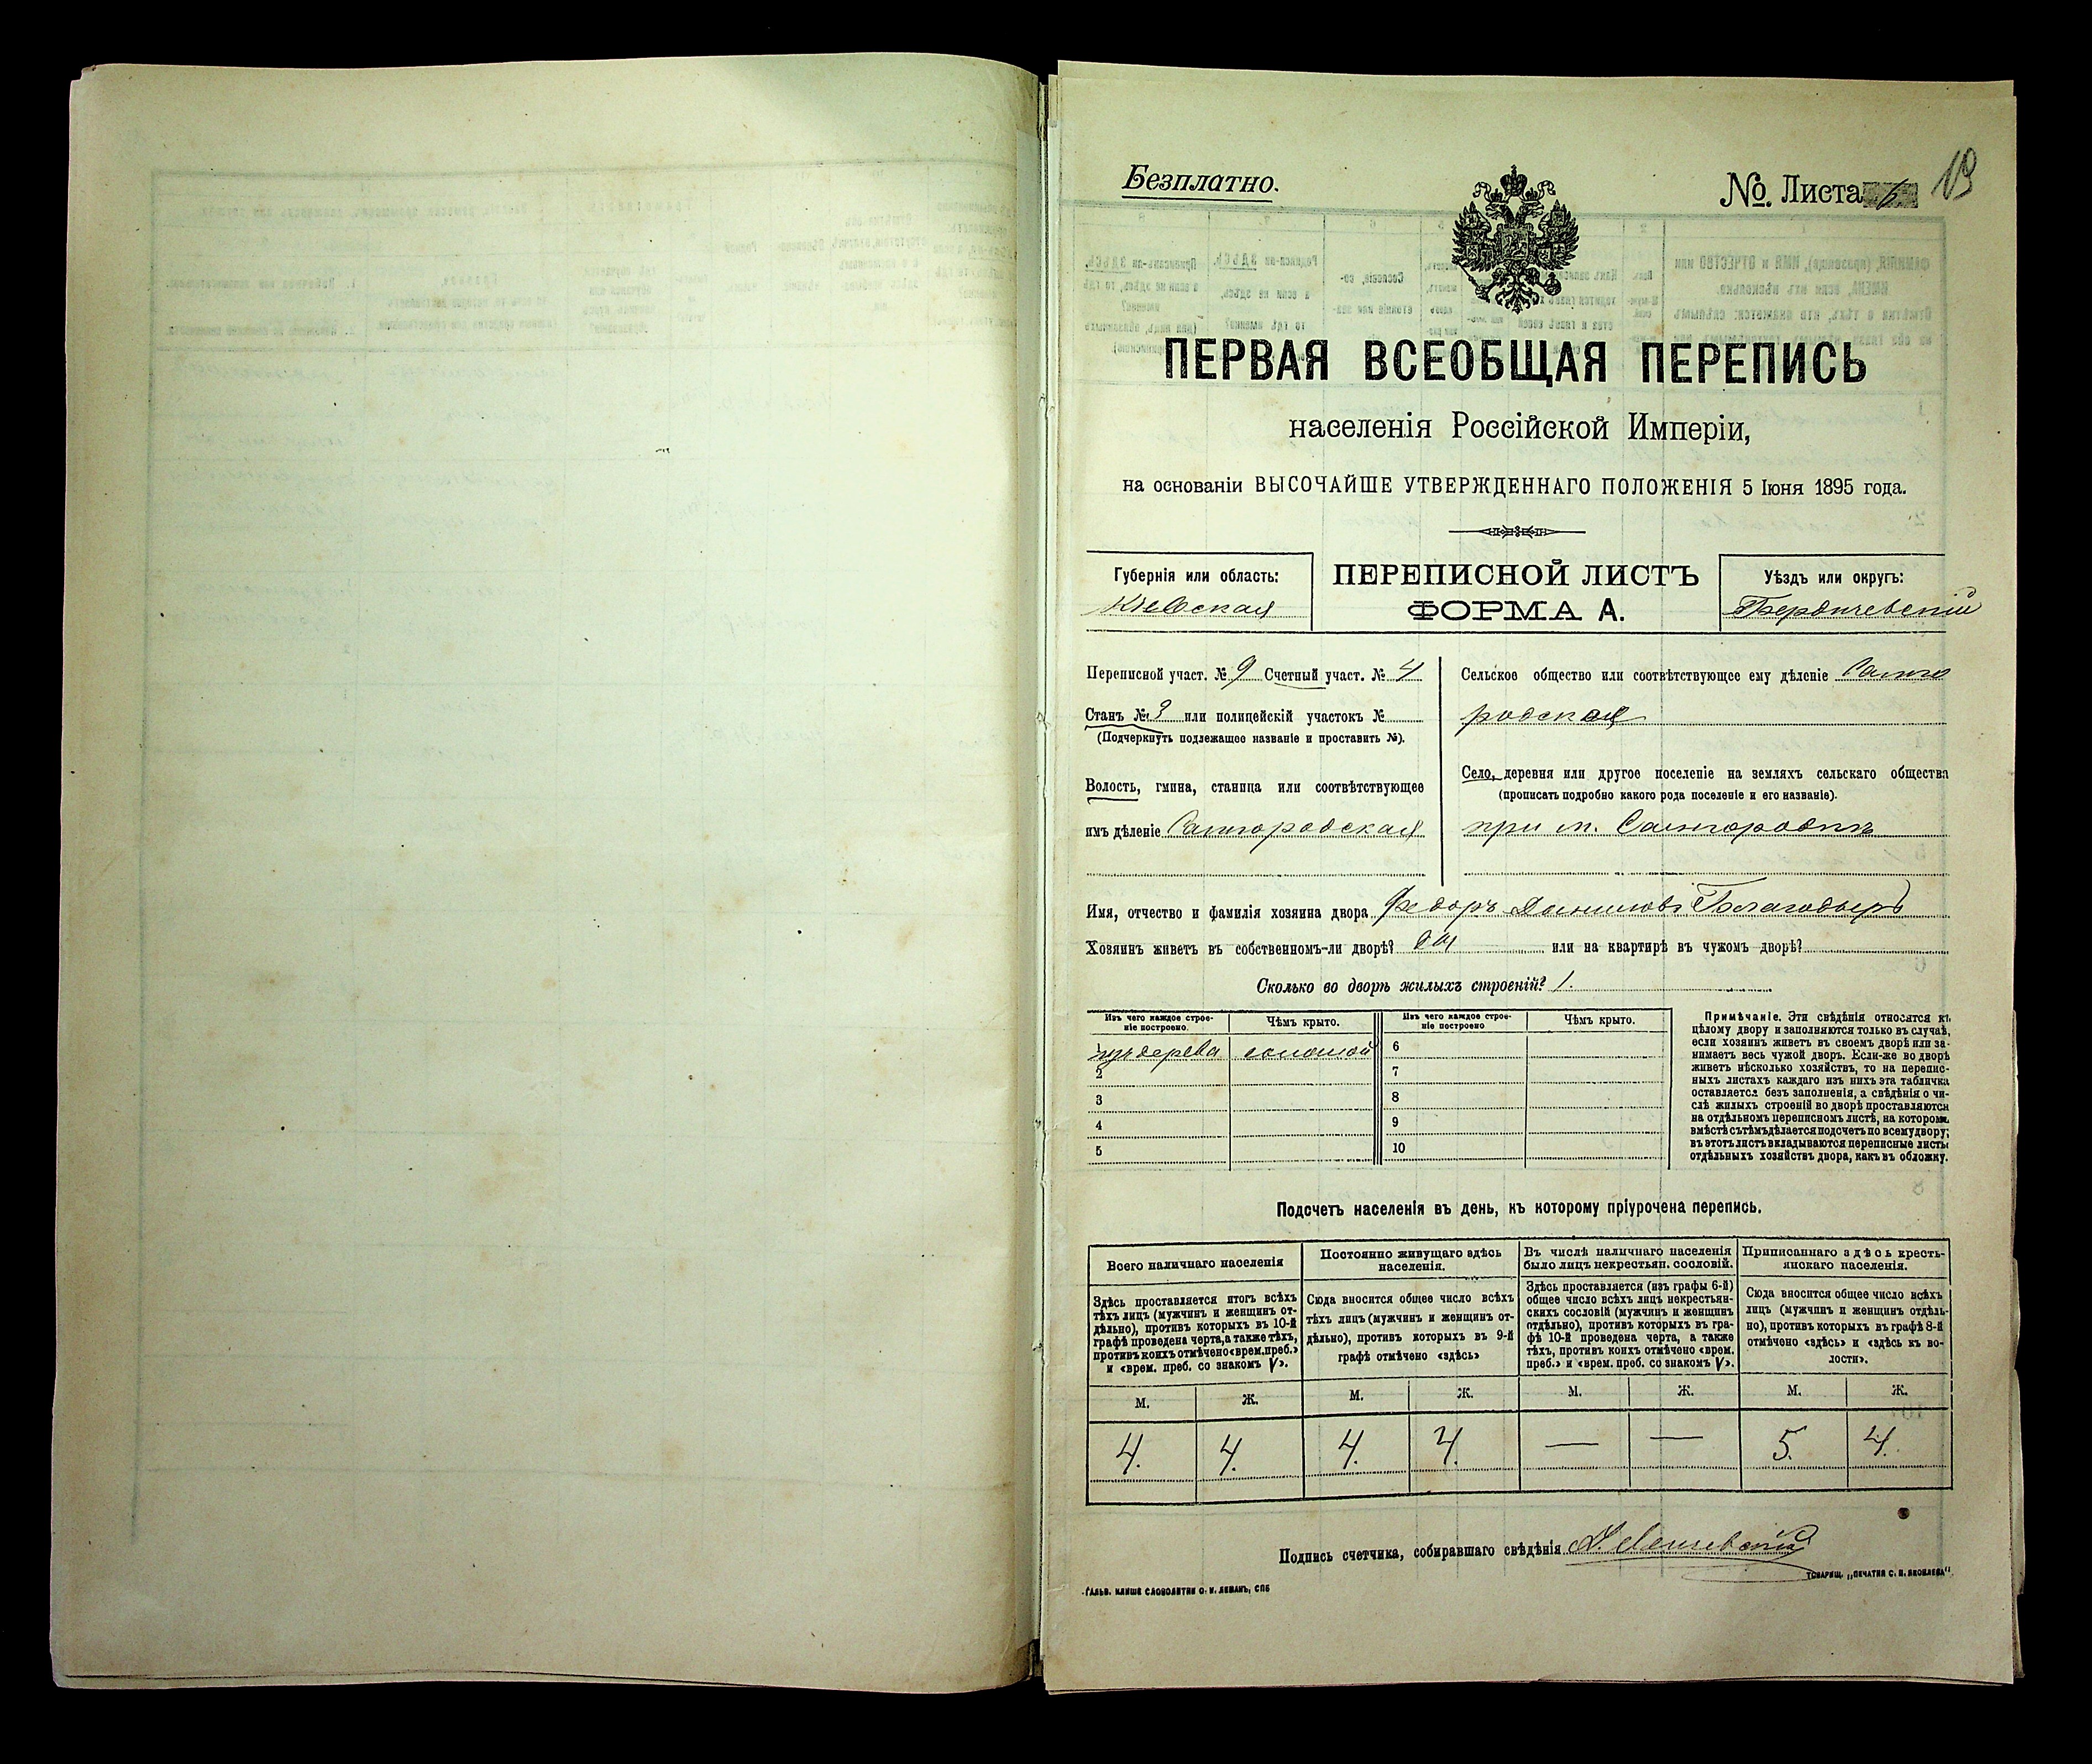 Безплатно.
№. Листа 6 19
ПЕРВАЯ ВСЕОБЩАЯ ПЕРЕПИСЬ
населенія Россійской Имперіи,
на основаніи ВЫСОЧАЙШЕ УТВЕРЖДЕННАГО ПОЛОЖЕНІЯ 5 Іюня 1895 года.
Губернія или область:
Кіевская
ПЕРЕПИСНОЙ ЛИСТЪ
ФОРМА А.
Уѣздъ или округъ:
Бердичевскій
Переписной участ. № 9 Счетный участ. № 4
Станъ № 3 или полицейскій участокъ №
(Подчеркнуть подлежащее названіе и проставить №).
Волость, гмина, станица или соотвѣтствующее
имъ дѣленіе Самгородская
Сельское общество или соотвѣтствующее ему дѣленіе Самго
родская
Село, деревня или другое поселеніе на земляхъ сельскаго общества
(прописать подробно какого рода поселеніе и его названіе).
при м. Самгородкѣ
Имя, отчество и фамилія хозяина двора Федоръ Даниловъ Благодыръ
Хозяинъ живетъ въ собственномъ-ли дворѣ? да или на квартирѣ въ чужомъ дворѣ?
Сколько во дворѣ жилыхъ строеній? 1.
Изъ чего каждое строе-
ніе построено.
Чѣмъ крыто.
Изъ чего каждое строе-
ніе построено
Чѣмъ крыто.
1 изъ дерева соломой 6
2 7
3 8
4 9
5 10
Примѣчаніе. Эти свѣдѣнія относятся къ
цѣлому двору и заполняются только въ случаѣ,
если хозяинъ живетъ въ своемъ дворѣ или за-
нимаетъ весь чужой дворъ. Если-же во дворѣ
живетъ нѣсколько хозяйствъ, то на перепис-
ныхъ листахъ каждаго изъ нихъ эта табличка
оставляется безъ заполненія, а свѣдѣнія о чи-
слѣ жилыхъ строеній во дворѣ проставляются
на отдѣльномъ переписномъ листѣ, на которомъ
вмѣстѣ съ тѣмъ дѣлается подсчетъ по всему двору;
въ этотъ листъ вкладываются переписные листы
отдѣльныхъ хозяйствъ двора, какъ въ обложку.
Подсчетъ населенія въ день, къ которому пріурочена перепись.
Всего наличнаго населенія
Здѣсь проставляется итогъ всѣхъ
тѣхъ лицъ (мужчинъ и женщинъ от-
дѣльно), противъ которыхъ въ 10-й
графѣ проведена черта, а также тѣхъ,
противъ коихъ отмѣчено «врем. преб.»
и «врем. преб. со знакомъ V».
Постоянно живущаго здѣсь
населенія.
Сюда вносится общее число всѣхъ
тѣхъ лицъ (мужчинъ и женщинъ от-
дѣльно), противъ которыхъ въ 9-й
графѣ отмѣчено «здѣсь»
Въ числѣ наличнаго населенія
было лицъ некрестьян. сословій.
Здѣсь проставляется (изъ графы 6-й)
общее число всѣхъ лицъ некрестьян-
скихъ сословій (мужчинъ и женщинъ
отдѣльно), противъ которыхъ въ гра-
фѣ 10-й проведена черта, а также
тѣхъ, противъ коихъ отмѣчено «врем.
преб.» и «врем. преб. со знакомъ V».
Приписаннаго здѣсь кресть-
янскаго населенія.
Сюда вносится общее число всѣхъ
лицъ (мужчинъ и женщинъ отдѣль-
но), противъ которыхъ въ графѣ 8-й
отмѣчено «здѣсь» и «здѣсь къ во-
лости».
М. Ж. М. Ж. М. Ж. М. Ж.
4. 4. 4. 4. — — 5. 4.
Подпись счетчика, собиравшаго свѣдѣнія
ГАЛЬВ. КЛИШЕ СЛОВОЛИТНИ О. И. ЛЕМАНЪ, СПБ
ТОВАРИЩ. „ПЕЧАТНЯ С. П. ЯКОВЛЕВА"